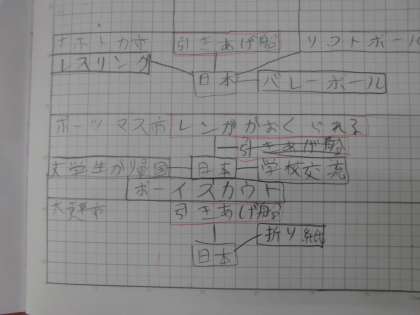 引きあげ船 ソフトボール
レスリング
日本 バレーボール
ポーツマス市 レンガがおくられる
引きあげ船
大学生が帰国 日本 学校交流
ボーイスカウト
引きあげ船
日本 折り紙